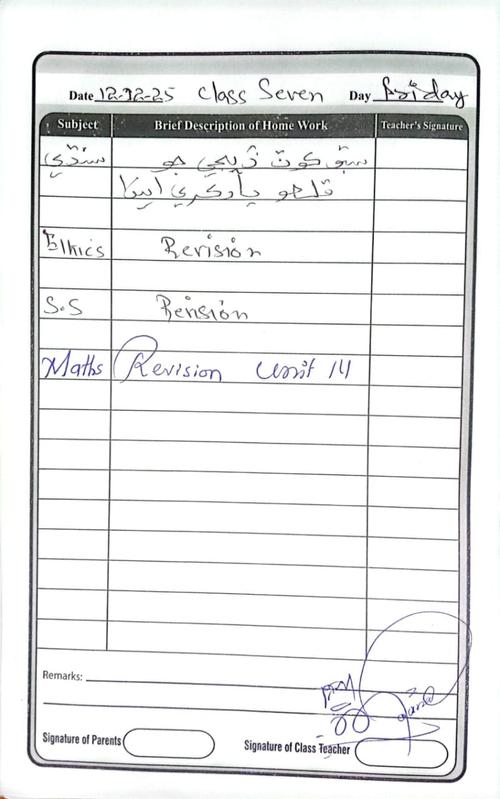 Date 12-12-25 Class Seven Day Friday
Subject Brief Description of Home Work Teacher's Signature
سنڌي سبق ڪوٽ ڏيجي جو
قلعو ياد ڪري اچڻ
Ethics Revision
S.S Revision
Maths Revision Unit 14
Remarks:
Signature of Parents Signature of Class Teacher